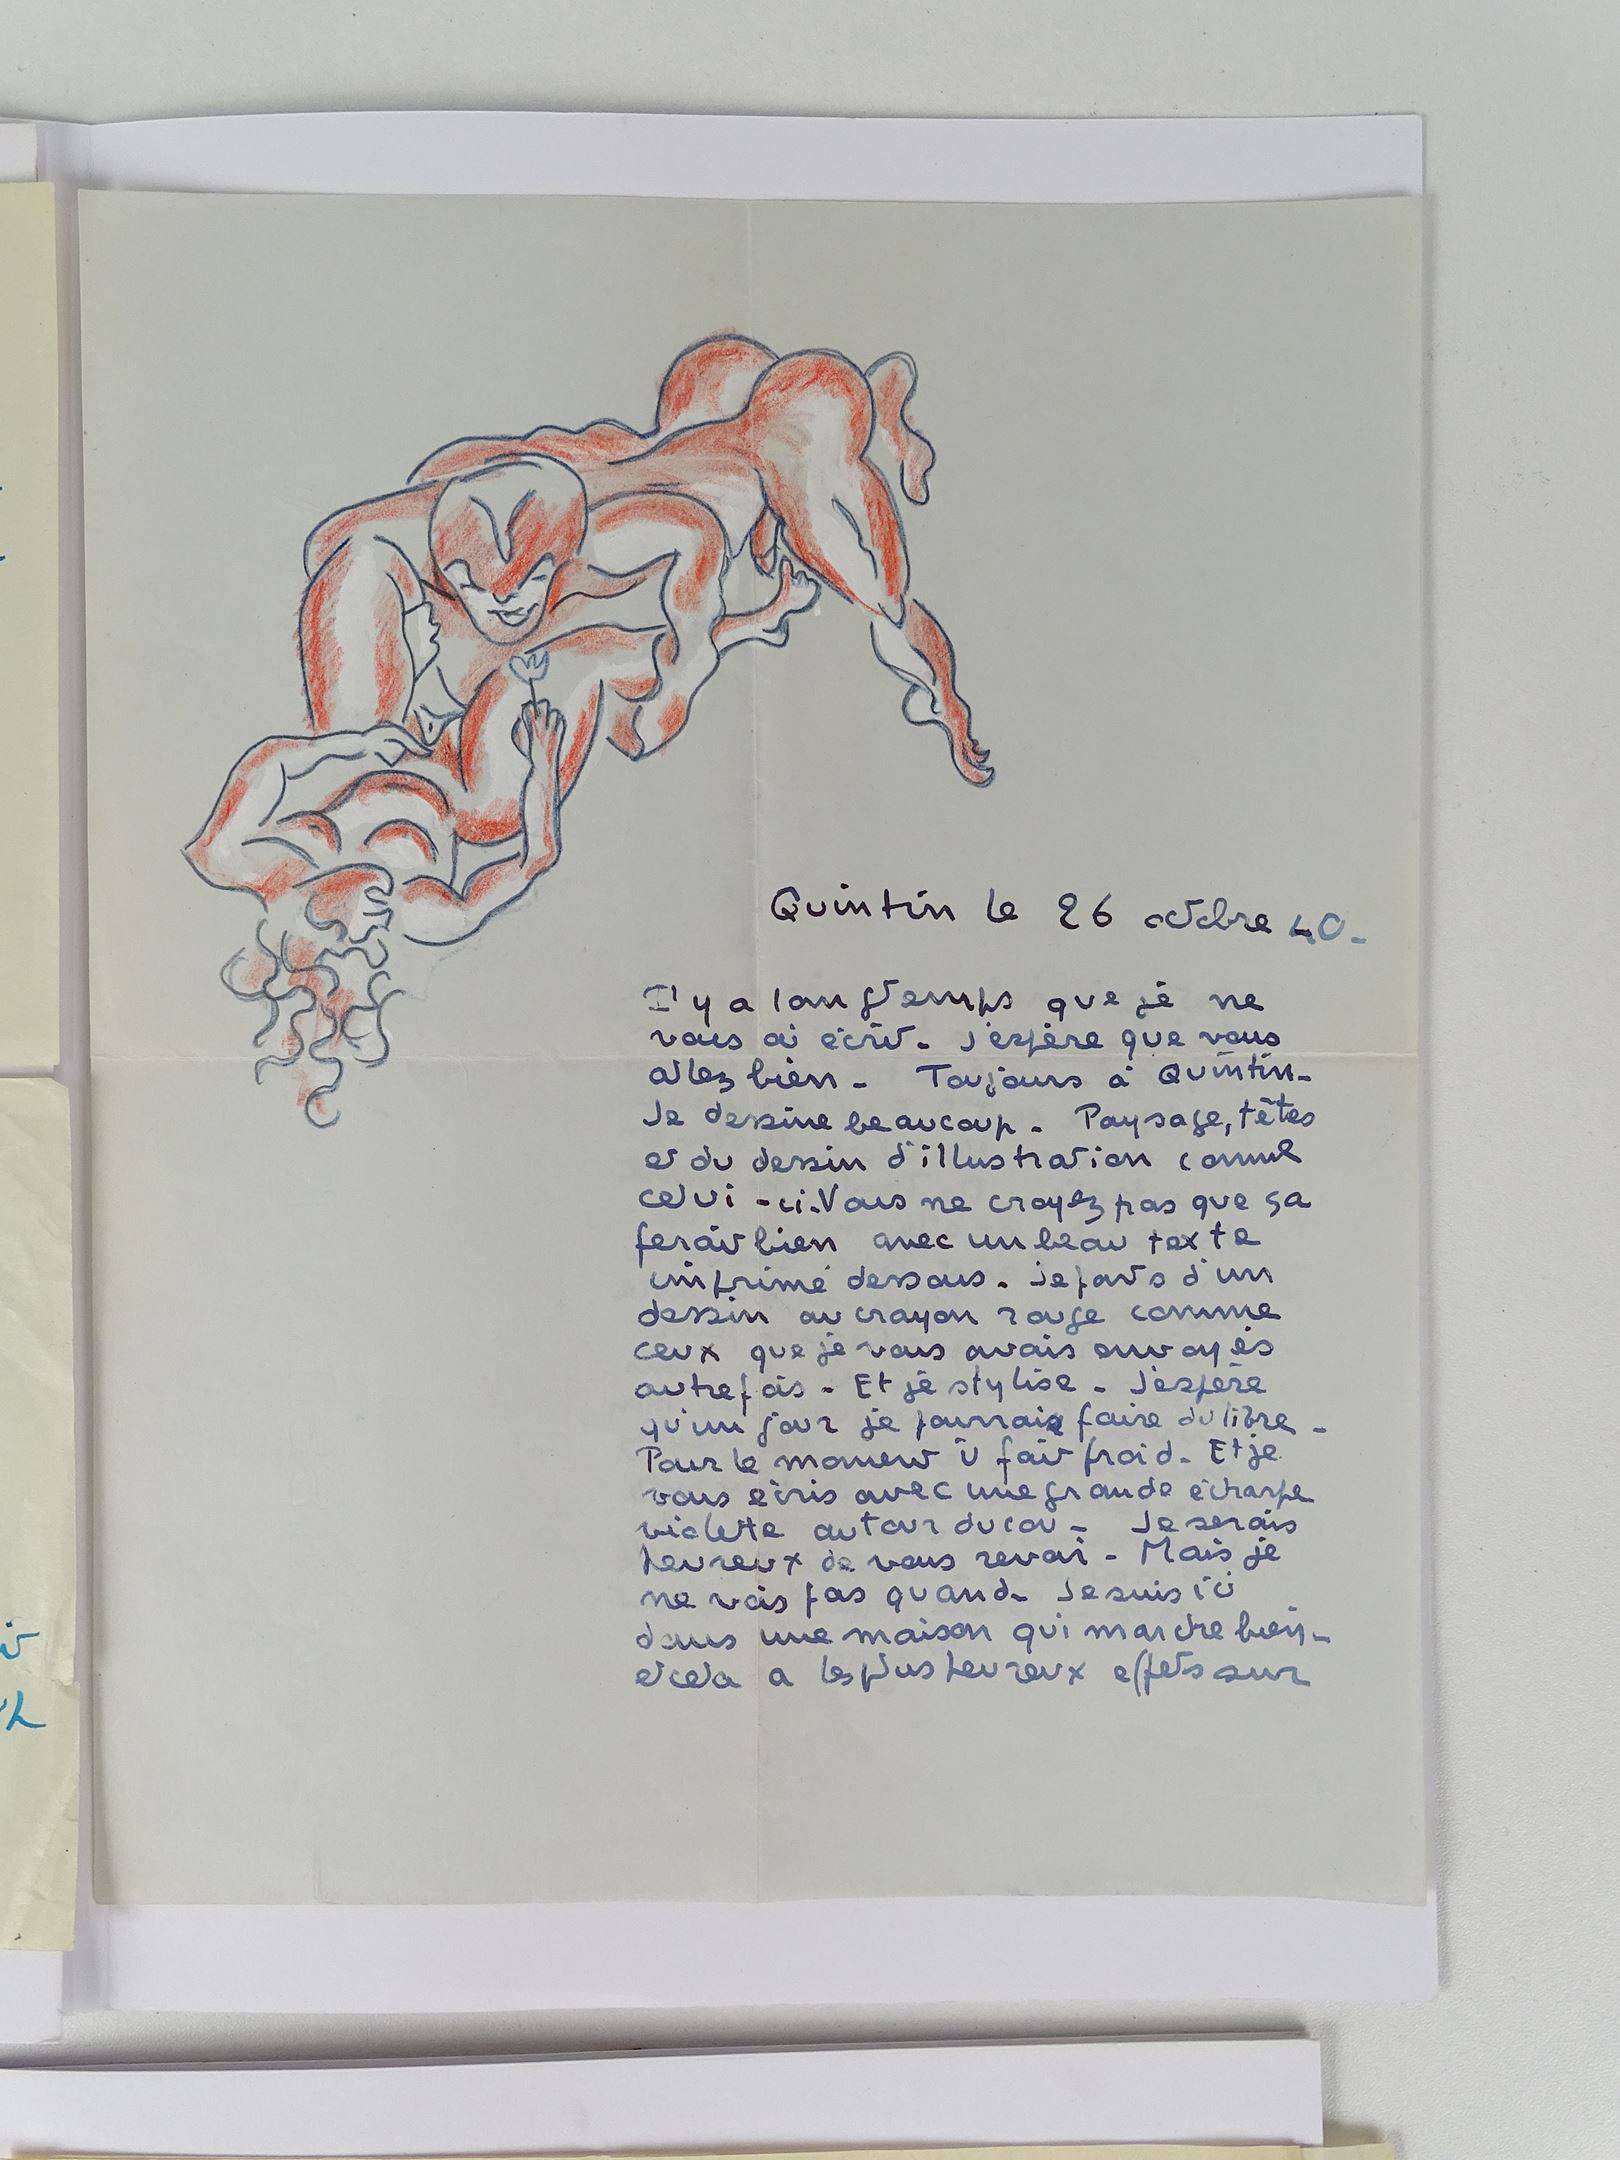 Quintin le 26 octobre 40-
Il y a longtemps que je ne
vous ai écrit - J'espère que vous
allez bien - Toujours à Quintin-
Je dessine beaucoup - Paysage, têtes
et du dessin d'illustration comme
celui-ci. Vous ne croyez pas que ça
ferait bien avec un beau texte
imprimé dessous. Je parts d'un
dessin au crayon rouge comme
ceux que je vous avais envoyés
autrefois - Et je stylise - J'espère
qu'un jour je pourrais faire du libre -
Pour le moment il fait froid - Et je
vous écris avec une grande écharpe
violette autour du cou - Je serais
heureux de vous revoir - Mais je
ne vois pas quand - Je suis ici
dans une maison qui marche bien -
et cela a les plus heureux effets sur